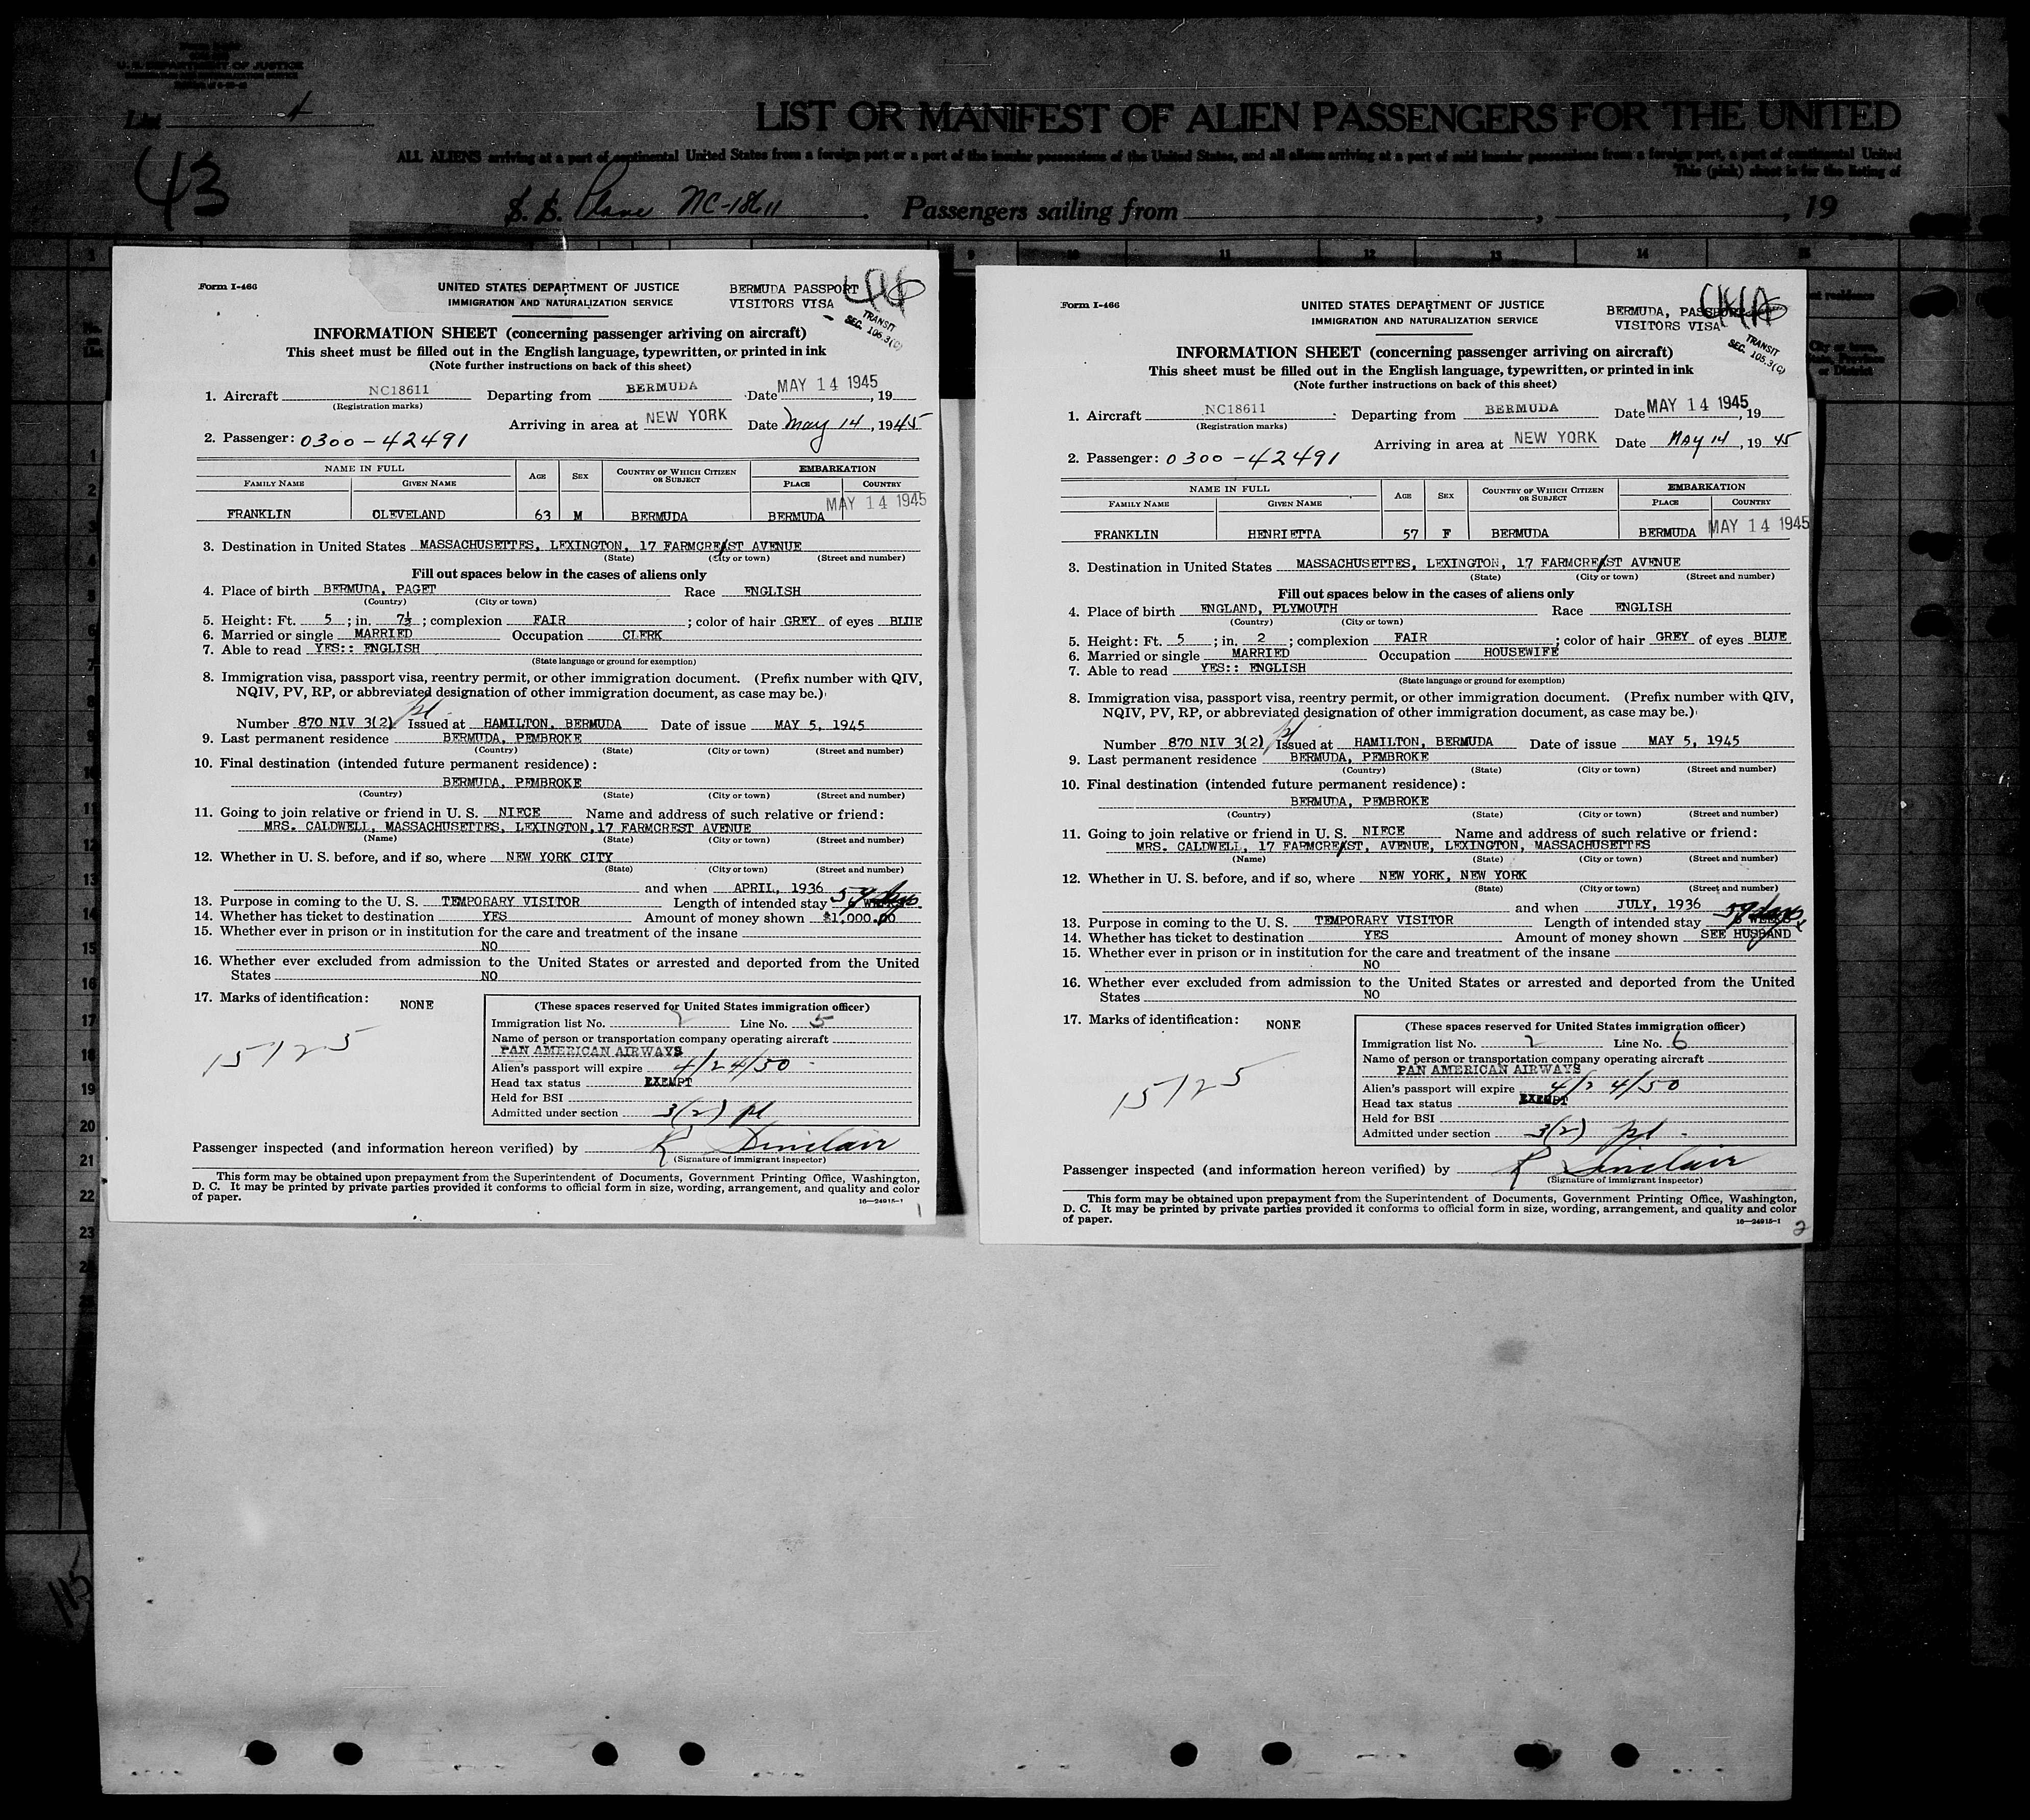 U. S. DEPARTMENT OF JUSTICE
List
43
LIST OR MANIFEST OF ALIEN PASSENGERS FOR THE UNITED
ALL ALIENS arriving at a port of continental United States from a foreign port or a port of the insular possessions of the United States, and all aliens arriving at a port of said insular possessions from a foreign port, a port of continental United
This (pink) sheet is for the listing of
S. S. Plane NC-18611 Passengers sailing from , , 19
Form I-466
UNITED STATES DEPARTMENT OF JUSTICE
IMMIGRATION AND NATURALIZATION SERVICE
BERMUDA PASSPORT
VISITORS VISA
TRANSIT
SEC. 105.3(C)
INFORMATION SHEET (concerning passenger arriving on aircraft)
This sheet must be filled out in the English language, typewritten, or printed in ink
(Note further instructions on back of this sheet)
1. Aircraft NC18611 Departing from BERMUDA Date MAY 14 1945, 19
(Registration marks)
Arriving in area at NEW YORK Date May 14, 1945
2. Passenger: 0300-42491
NAME IN FULL AGE SEX COUNTRY OF WHICH CITIZEN OR SUBJECT EMBARKATION
FAMILY NAME GIVEN NAME PLACE COUNTRY
MAY 14 1945
FRANKLIN CLEVELAND 63 M BERMUDA BERMUDA
3. Destination in United States MASSACHUSETTES, LEXINGTON, 17 FARMCREST AVENUE
(State) (City or town) (Street and number)
Fill out spaces below in the cases of aliens only
4. Place of birth BERMUDA, PAGET Race ENGLISH
(Country) (City or town)
5. Height: Ft. 5 ; in. 7½ ; complexion FAIR ; color of hair GREY of eyes BLUE
6. Married or single MARRIED Occupation CLERK
7. Able to read YES:: ENGLISH
(State language or ground for exemption)
8. Immigration visa, passport visa, reentry permit, or other immigration document. (Prefix number with QIV,
NQIV, PV, RP, or abbreviated designation of other immigration document, as case may be.)
Number 870 NIV 3(2) pl Issued at HAMILTON, BERMUDA Date of issue MAY 5, 1945
9. Last permanent residence BERMUDA, PEMBROKE
(Country) (State) (City or town) (Street and number)
10. Final destination (intended future permanent residence):
BERMUDA, PEMBROKE
(Country) (State) (City or town) (Street and number)
11. Going to join relative or friend in U. S. NIECE Name and address of such relative or friend:
MRS. CALDWELL, MASSACHUSETTES, LEXINGTON,17 FARMCREST AVENUE
(Name) (State) (City or town) (Street and number)
12. Whether in U. S. before, and if so, where NEW YORK CITY
(State) (City or town) (Street and number)
and when APRIL, 1936
13. Purpose in coming to the U. S. TEMPORARY VISITOR Length of intended stay 59 days
14. Whether has ticket to destination YES Amount of money shown $1,000.00
15. Whether ever in prison or in institution for the care and treatment of the insane
NO
16. Whether ever excluded from admission to the United States or arrested and deported from the United
States NO
17. Marks of identification: NONE
15125
(These spaces reserved for United States immigration officer)
Immigration list No. 2 Line No. 5
Name of person or transportation company operating aircraft
PAN AMERICAN AIRWAYS
Alien's passport will expire 4/24/50
Head tax status EXEMPT
Held for BSI
Admitted under section 3(2) pl
Passenger inspected (and information hereon verified) by R Sinclair
(Signature of immigrant inspector)
This form may be obtained upon prepayment from the Superintendent of Documents, Government Printing Office, Washington,
D. C. It may be printed by private parties provided it conforms to official form in size, wording, arrangement, and quality and color
of paper.
16—24915-1
1
Form I-466
UNITED STATES DEPARTMENT OF JUSTICE
IMMIGRATION AND NATURALIZATION SERVICE
BERMUDA, PASSPORT
VISITORS VISA
TRANSIT
SEC. 105.3(C)
INFORMATION SHEET (concerning passenger arriving on aircraft)
This sheet must be filled out in the English language, typewritten, or printed in ink
(Note further instructions on back of this sheet)
1. Aircraft NC18611 Departing from BERMUDA Date MAY 14 1945, 19
(Registration marks)
Arriving in area at NEW YORK Date MAY 14, 1945
2. Passenger: 0300-42491
NAME IN FULL AGE SEX COUNTRY OF WHICH CITIZEN OR SUBJECT EMBARKATION
FAMILY NAME GIVEN NAME PLACE COUNTRY
FRANKLIN HENRIETTA 57 F BERMUDA BERMUDA MAY 14 1945
3. Destination in United States MASSACHUSETTES, LEXINGTON, 17 FARMCREST AVENUE
(State) (City or town) (Street and number)
Fill out spaces below in the cases of aliens only
4. Place of birth ENGLAND, PLYMOUTH Race ENGLISH
(Country) (City or town)
5. Height: Ft. 5 ; in. 2 ; complexion FAIR ; color of hair GREY of eyes BLUE
6. Married or single MARRIED Occupation HOUSEWIFE
7. Able to read YES:: ENGLISH
(State language or ground for exemption)
8. Immigration visa, passport visa, reentry permit, or other immigration document. (Prefix number with QIV,
NQIV, PV, RP, or abbreviated designation of other immigration document, as case may be.)
Number 870 NIV 3(2) pl Issued at HAMILTON, BERMUDA Date of issue MAY 5, 1945
9. Last permanent residence BERMUDA, PEMBROKE
(Country) (State) (City or town) (Street and number)
10. Final destination (intended future permanent residence):
BERMUDA, PEMBROKE
(Country) (State) (City or town) (Street and number)
11. Going to join relative or friend in U. S. NIECE Name and address of such relative or friend:
MRS. CALDWELL, 17 FARMCREST, AVENUE, LEXINGTON, MASSACHUSETTES
(Name) (State) (City or town) (Street and number)
12. Whether in U. S. before, and if so, where NEW YORK, NEW YORK
(State) (City or town) (Street and number)
and when JULY, 1936
13. Purpose in coming to the U. S. TEMPORARY VISITOR Length of intended stay 59 days
14. Whether has ticket to destination YES Amount of money shown SEE HUSBAND
15. Whether ever in prison or in institution for the care and treatment of the insane
NO
16. Whether ever excluded from admission to the United States or arrested and deported from the United
States NO
17. Marks of identification: NONE
15125
(These spaces reserved for United States immigration officer)
Immigration list No. 2 Line No. 6
Name of person or transportation company operating aircraft
PAN AMERICAN AIRWAYS
Alien's passport will expire 4/24/50
Head tax status EXEMPT
Held for BSI
Admitted under section 3(2) pl
Passenger inspected (and information hereon verified) by R Sinclair
(Signature of immigrant inspector)
This form may be obtained upon prepayment from the Superintendent of Documents, Government Printing Office, Washington,
D. C. It may be printed by private parties provided it conforms to official form in size, wording, arrangement, and quality and color
of paper.
16—24915-1
2